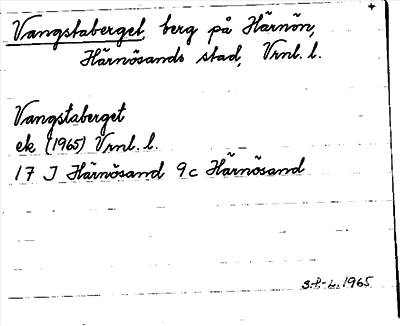 Vangstaberget, berg på Härnön,
Härnösands stad, Vrnl. l.
Vangstaberget
ek (1965) Vrnl. l.
17 J Härnösand 9c Härnösand
S.P.-L. 1965